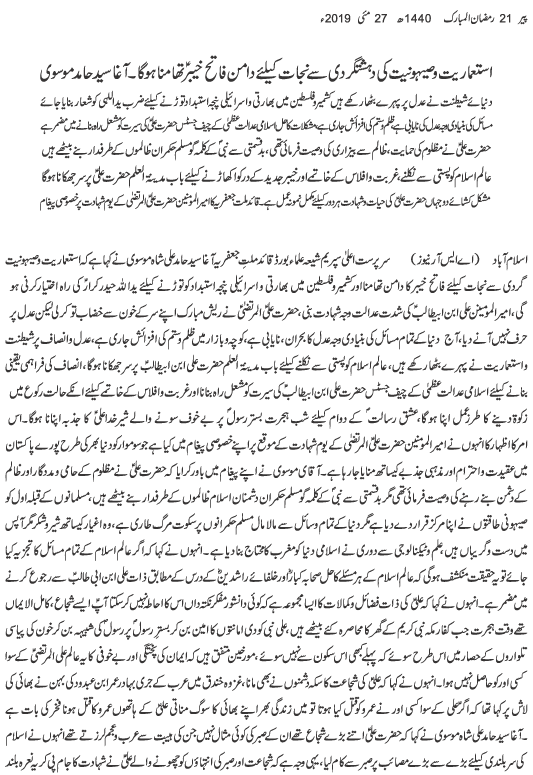 پیر 21 رمضان المبارک 1440ھ 27 مئی 2019ء
استعماریت وصیہونیت کی دہشتگردی سے نجات کیلئے دامن فاتح خیبرؑ تھامنا ہوگا۔ آغا سید حامد موسوی
دنیائے شیطنت نے عدل پر پہرے بٹھا رکھے ہیں کشمیر و فلسطین میں بھارتی و اسرائیلی پنجہ استبداد توڑنے کیلئے ضرب یداللہی کو شعار بنایا جائے
مسائل کی بنیادی وجہ عدل کی نایابی ہے ظلم و ستم کی افزائش جاری ہے، مشکلات کا حل اسلامی عدالت عظمیٰ کے چیف جسٹس حضرت علیؑ کی سیرت کو مشعل راہ بنانے میں مضمر ہے
حضرت علیؑ نے مظلوم کی حمایت، ظالم سے بیزاری کی وصیت فرمائی تھی، بدقسمتی سے نبیؐ کے کلمہ گو مسلم حکمران ظالموں کے طرفدار بنے بیٹھے ہیں
عالم اسلام کو پستی سے نکلنے، غربت و افلاس کے خاتمے اور خیبر جدید کے در کو اکھاڑنے کیلئے باب مدینۃ العلم حضرت علیؑ پر سر جھکانا ہوگا
مشکل کشائے دو جہاں حضرت علیؑ کی حیات و شہادت ہر دور کیلئے مکمل نمونہ عمل ہے۔ قائد ملت جعفریہ کا امیر المومنین حضرت علی المرتضیٰؑ کے یوم شہادت پر خصوصی پیغام
اسلام آباد (اے ایس آر نیوز) سرپرست اعلیٰ سپریم شیعہ علماء بورڈ قائد ملت جعفریہ آغا سید حامد علی شاہ موسوی نے کہا ہے کہ استعماریت وصیہونیت
گردی سے نجات کیلئے فاتح خیبر کا دامن تھامنا اور کشمیر و فلسطین میں بھارتی و اسرائیلی پنجہ استبداد کو توڑنے کیلئے ید اللہ حیدر کرارؑ کی راہ اختیار کرنی ہو
گی، امیر المومنین علی ابن ابیطالبؑ کی شدت عدالت وجہ شہادت بنی، حضرت علی المرتضیٰؑ نے ریش مبارک اپنے سر کے خون سے خضاب تو کر لی لیکن عدل پر
حرف نہیں آنے دیا، آج دنیا کے تمام مسائل کی بنیادی وجہ عدل کا بحران، نایابی ہے، کوچہ و بازار میں ظلم و ستم کی افزائش جاری ہے، عدل و انصاف پر شیطنت
و استعماریت نے پہرے بٹھا رکھے ہیں، عالم اسلام کو پستی سے نکلنے کیلئے باب مدینۃ العلم حضرت علی ابن ابیطالبؑ پر سر جھکانا ہوگا، انصاف کی فراہمی یقینی
بنانے کیلئے اسلامی عدالت عظمیٰ کے چیف جسٹس حضرت علی ابن ابیطالبؑ کی سیرت کو مشعل راہ بنانا اور غربت و افلاس کے خاتمے کیلئے انکے حالت رکوع میں
زکوۃ دینے کا طرز عمل اپنا ہوگا، عشق رسالتؐ کے دوام کیلئے شب ہجرت بستر رسولؐ پر بے خوف سونے والے شیر خدا علیؑ کا جذبہ اپنانا ہوگا۔ اس
امر کا اظہار کا انہوں نے امیر المومنین حضرت علی المرتضیٰؑ کے یوم شہادت کے موقع پر اپنے خصوصی پیغام میں کیا ہے جو سوموار کو دنیا بھر کی طرح پورے پاکستان
میں عقیدت و احترام اور مذہبی جذبے کیساتھ منایا جا رہا ہے۔ آقای موسوی نے اپنے پیغام میں باور کرایا کہ حضرت علیؑ نے مظلوم کے حامی و مددگار اور ظالم
کے دشمن بنے رہنے کی وصیت فرمائی تھی مگر بدقسمتی سے نبیؐ کے کلمہ گو مسلم حکمران دشمنان اسلام ظالموں کے طرفدار بنے بیٹھے ہیں، مسلمانوں کے قبلہ اول کو
صیہونی طاقتوں نے اپنا مرکز قرار دے دیا ہے مگر دنیا کے تمام وسائل سے مالا مال مسلم حکمرانوں پر سکوت مرگ طاری ہے، وہ اغیار کیساتھ شیر و شکر مگر آپس
میں دست و گریباں ہیں، علم و ٹیکنالوجی سے دوری نے اسلامی دنیا کو مغرب کا محتاج بنا دیا ہے۔ انہوں نے کہا کہ اگر عالم اسلام کے تمام مسائل کا تجزیہ کیا
جائے تو یہ حقیقت منکشف ہوگی کہ عالم اسلام کے ہر مسئلے کا حل صحابہ کبارؓ اور خلفائے راشدینؓ کے درس کے مطابق ذات علی ابن ابی طالبؑ سے رجوع کرنے
میں مضمر ہے۔ انہوں نے کہا کہ علیؑ کی ذات فضائل و کمالات کا ایسا مجموعہ ہے کہ کوئی دانشور مفکر نکتہ داں اس کا احاطہ نہیں کر سکتا آپؑ ایسے شجاع، کامل الایمان
تھے وقت ہجرت جب کفار مکہ نبی کریمؐ کے گھر کا محاصرہ کئے بیٹھے ہیں، علی نبی کو دی امانتوں کا امین بن کر بستر رسولؐ پر رسولؐ کی شبیہہ بن کر خون کی پیاسی
تلواروں کے حصار میں اس طرح سوئے کہ پہلے کبھی اس سکون سے نہیں سوئے، مورخین متفق ہیں کہ ایمان کی پختگی اور بے خوفی کا یہ عالم علی المرتضیٰؑ کے سوا
کسی اور کو حاصل نہیں ہوا۔ انہوں نے کہا کہ علیؑ کی شجاعت کا سکہ دشمنوں نے بھی مانا، غزوہ خندق میں عرب کے جری بہادر عمر ابن عبدود کی بہن نے بھائی کی
لاش پر کہا تھا کہ اگر علی کے سوا کسی اور نے عمرو کو قتل کیا ہوتا تو میں زندگی بھر اپنے بھائی کا سوگ مناتی علیؑ کے ہاتھوں عمرو کا قتل ہونا فخر کی بات ہے
۔ آغا سید حامد علی شاہ موسوی نے کہا کہ حضرت علیؑ اتنے بڑے شجاع تھے ان کے صبر کی کوئی مثال نہیں جن کی ہیبت سے عرب و عجم لرزتے تھے انہوں نے اسلام
کی سربلندی کیلئے بڑے سے بڑے مصائب پر صبر سے کام لیا، یہی وجہ ہے کہ شجاعت اور صبر کی انتہاؤں کو چھونے والے علیؑ نے شہادت کا جام پی کر یہ نعرہ بلند